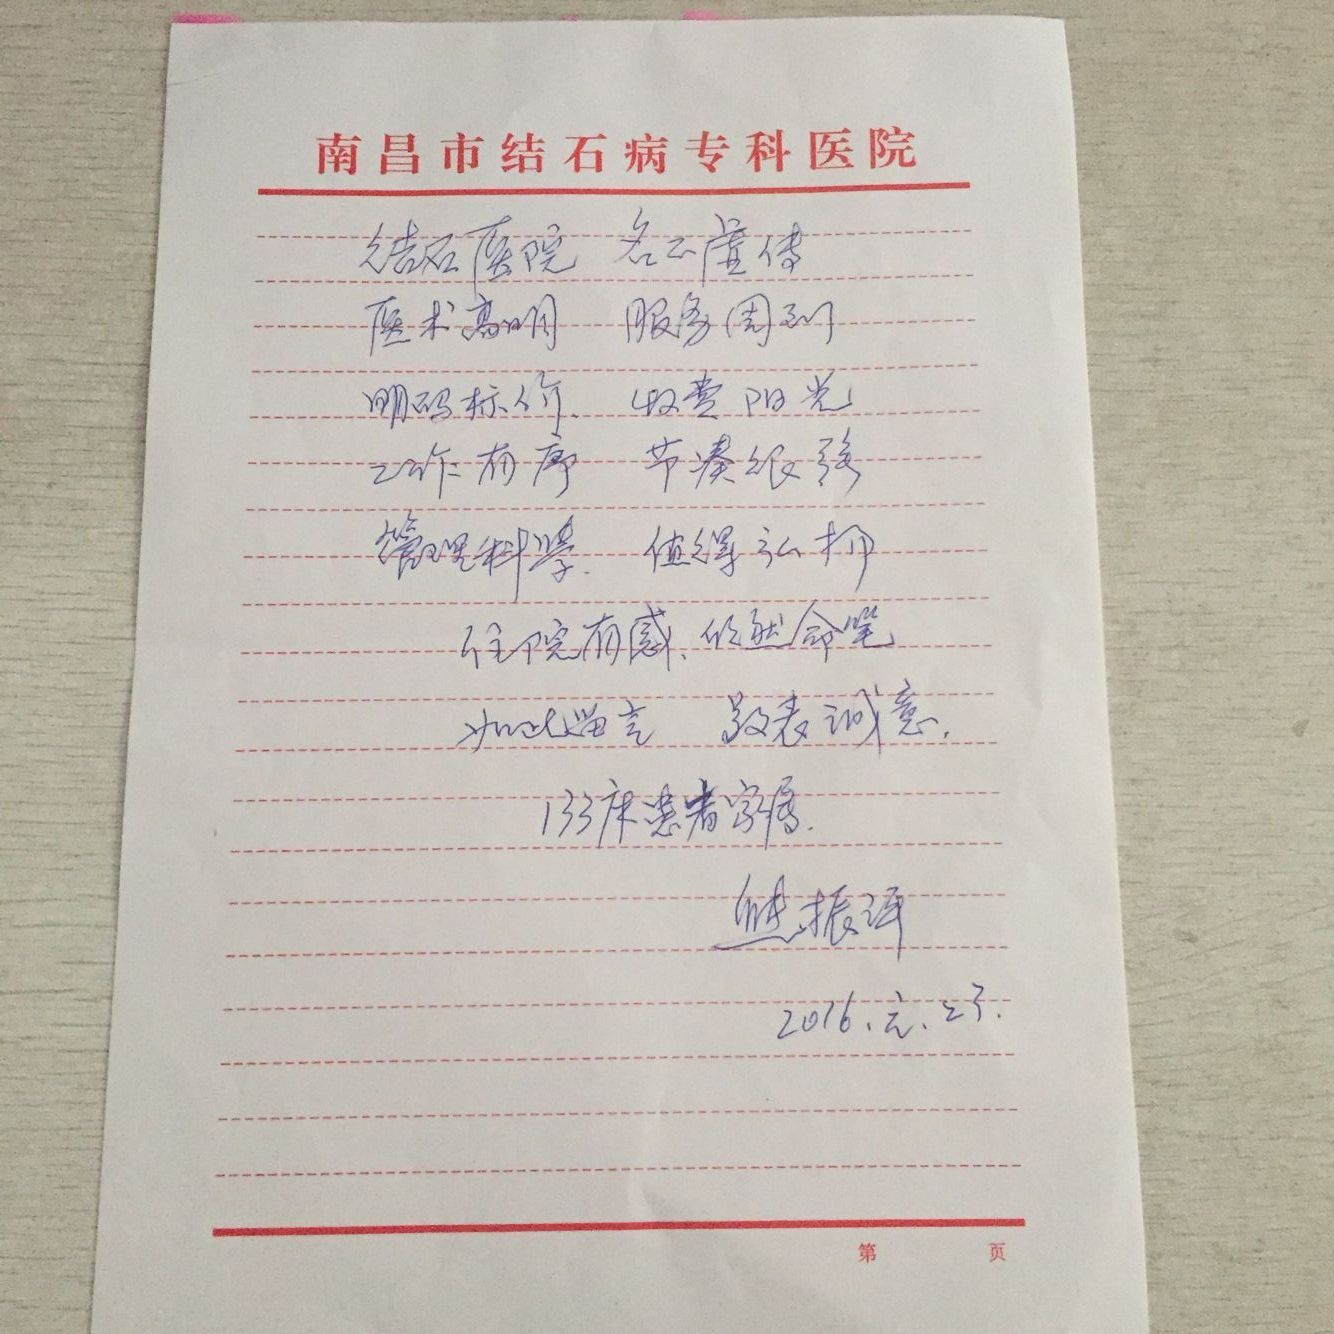 南昌市结石病专科医院
结石医院 名不虚传
医术高明 服务周到
明码标价、收费阳光
工作有序 节凑很强
管理科学、值得弘扬
住院有感、欣然命笔
如此留言 敬表诚意.
133床患者家属.
熊振
2016.元.27.
第 页